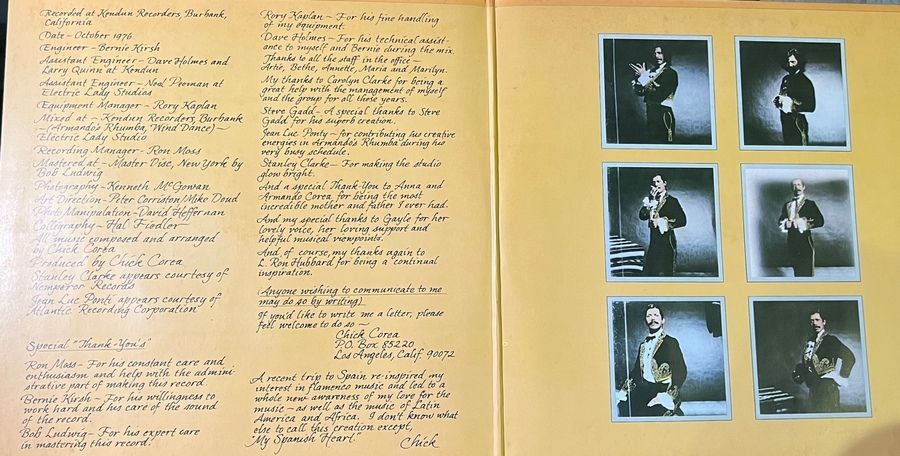 Recorded at Kendun Recorders, Burbank,
California
Date - October 1976
Engineer - Bernie Kirsh
Assistant Engineer - Dave Holmes and
Larry Quinn at Kendun
Assistant Engineer - Ned Peeman at
Electric Lady Studios
Equipment Manager - Rory Kaplan
Mixed at - Kendun Recorders, Burbank
- (Armando's Rhumba, Wind Dance) -
Electric Lady Studio
Recording Manager - Ron Moss
Mastered at - Master Disc, New York by
Bob Ludwig
Photography - Kenneth McGowan
Art Direction - Peter Corriston/Mike Doud
Manipulation - David Heffernan
Calligraphy - Hal Fiedler
All music composed and arranged
by Chick Corea
Produced by Chick Corea
Stanley Clarke appears courtesy of
Nemperor Records
Jean Luc Ponti appears courtesy of
Atlantic Recording Corporation
Special "Thank-You's"
Ron Moss - For his constant care and
enthusiasm and help with the admini-
strative part of making this record.
Bernie Kirsh - For his willingness to
work hard and his care of the sound
of the record.
Bob Ludwig - For his expert care
in mastering this record.
Rory Kaplan - For his fine handling
of my equipment.
Dave Holmes - For his technical assist-
ance to myself and Bernie during the mix.
Thanks to all the staff in the office -
Artie, Bethe, Annette, Maria and Marilyn.
My thanks to Carolyn Clarke for being a
great help with the management of myself
and the group for all these years.
Steve Gadd - A special thanks to Steve
Gadd for his superb creation.
Jean Luc Ponty - for contributing his creative
energies in Armando's Rhumba during his
very busy schedule.
Stanley Clarke - For making the studio
glow bright.
And a special Thank-You to Anna and
Armando Corea for being the most
incredible mother and father I ever had.
And my special thanks to Gayle for her
lovely voice, her loving support and
helpful musical viewpoints.
And, of course, my thanks again to
L. Ron Hubbard for being a continual
inspiration.
(Anyone wishing to communicate to me
may do so by writing)
If you'd like to write me a letter, please
feel welcome to do so -
Chick Corea
P.O. Box 85220
Los Angeles, Calif. 90072
A recent trip to Spain re-inspired my
interest in flamenco music and led to a
whole new awareness of my love for the
music - as well as the music of Latin
America and Africa. I don't know what
else to call this creation except,
"My Spanish Heart."
Chick